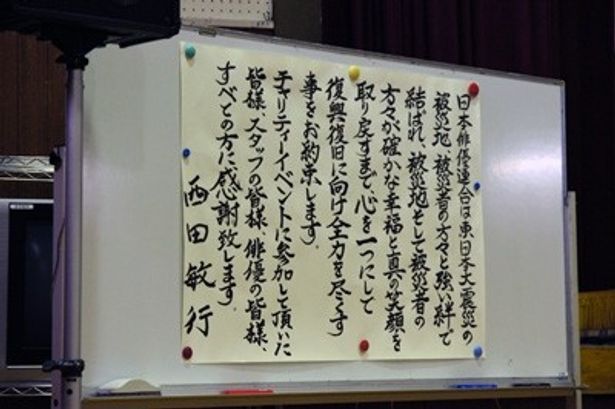 日本俳優連合は東日本大震災の
被災地、被災者の方々と強い絆で
結ばれ、被災地そして被災者の
方々が確かな幸福と真の笑顔を
取り戻すまで、心を一つにして
復興復旧に向け全力を尽くす
事をお約束します。
チャリティーイベントに参加して頂いた
皆様、スタッフの皆様、俳優の皆様、
すべての方に感謝致します。
西田敏行